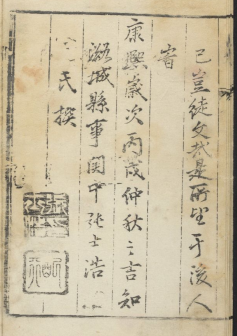 已豈徒文哉是所望于後人
者
康熙歲次丙戌仲秋之吉知
潞城縣事関中張士浩
氏撰